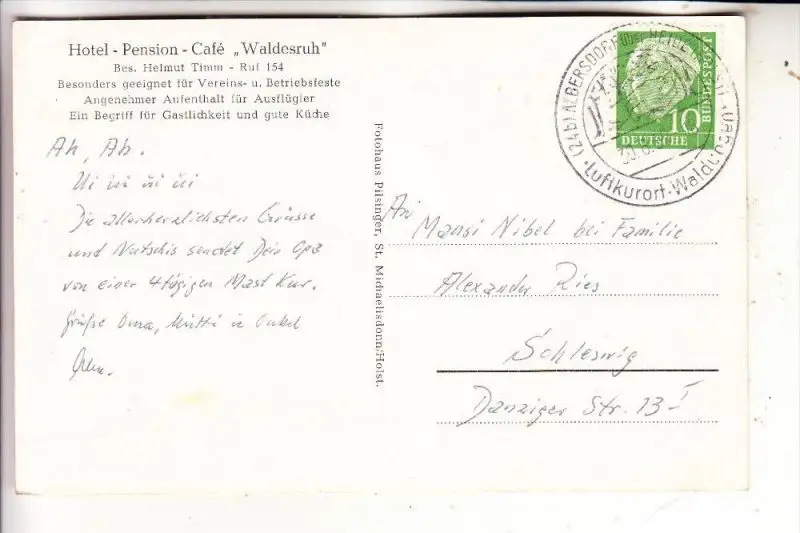 Hotel - Pension - Café „Waldesruh"
Bes. Helmut Timm - Ruf 154
Besonders geeignet für Vereins- u. Betriebsfeste
Angenehmer Aufenthalt für Ausflügler
Ein Begriff für Gastlichkeit und gute Küche
Ah, Ah.
Die allerherzlichsten Grüsse
und Nutschis sendet Dein Opa
von einer 4tägigen Mast Kur.
Grüße Oma, Mutti u Onkel
Fotohaus Pilsinger, St. Michaelisdonn/Holst.
(24b) ALBERSDORF über HEIDE
Luftkurort
DEUTSCHE
BUNDESPOST
10
An
Mansi Nibel bei Familie
Alexander Ries
Schleswig
Danziger Str. 13 I